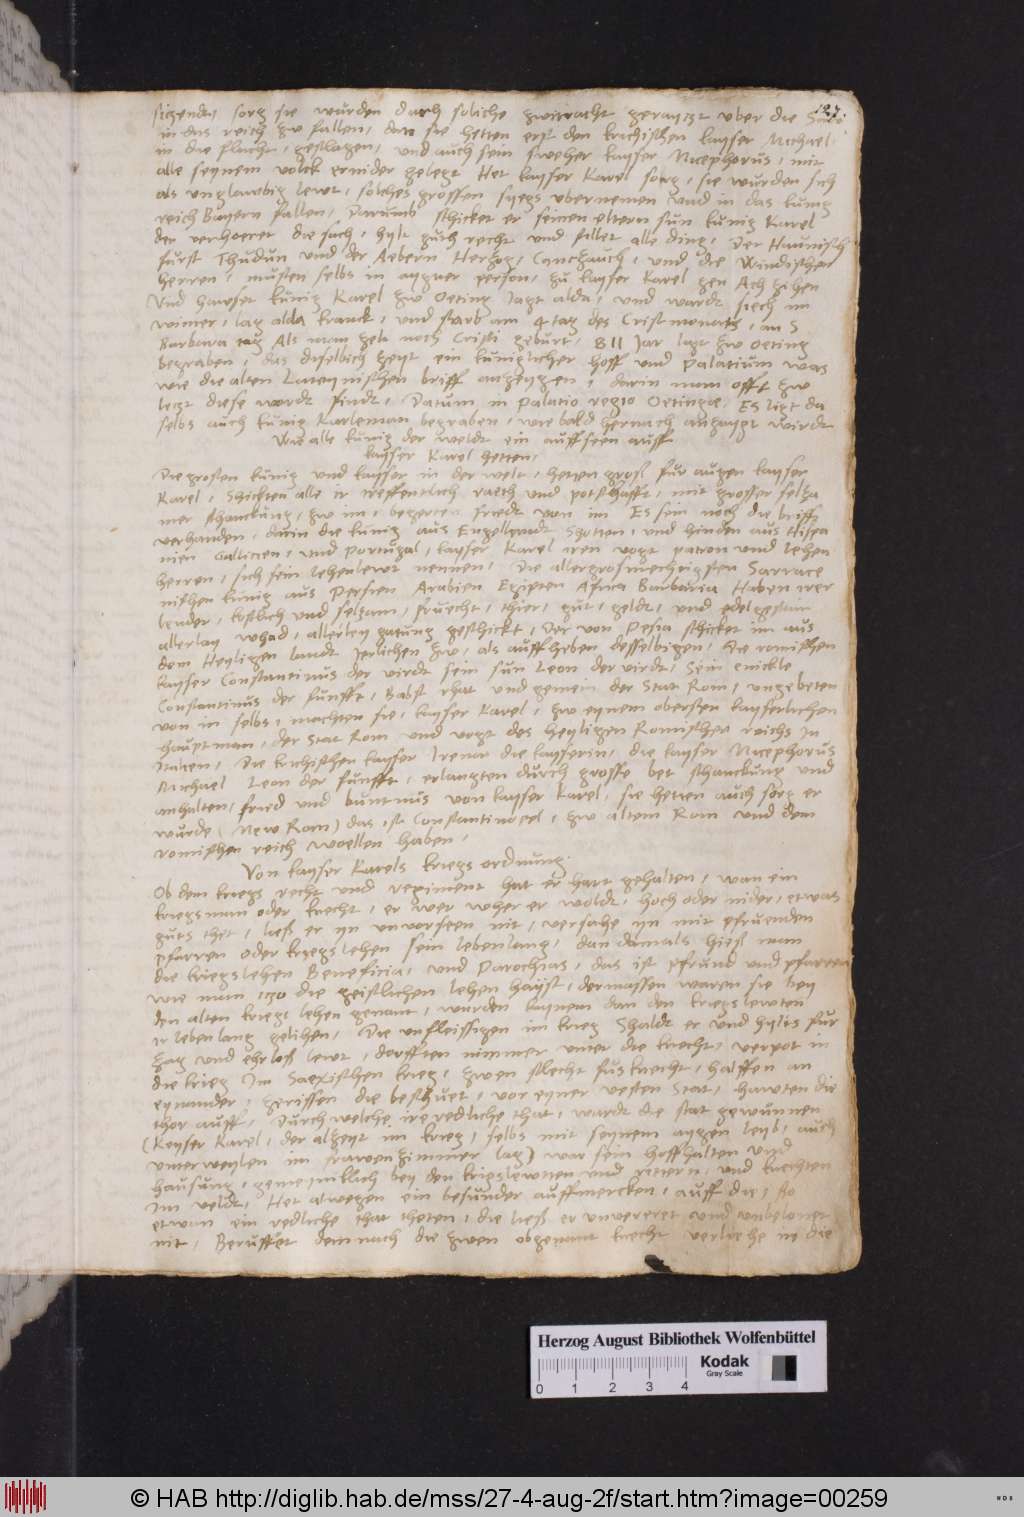 127.
sigends, sorg sie wurden durch soliche zwitracht geraytzt uber die Saw
in das reich zw fallen, dan sie hetten erst den krichischen kayser Michael
in die flucht, geschlagen, und auch sein sweher kayser Nicephorus, mit
alle seynem volck ernider gelegt Het kayser Karel sorg, sie wurden sich
als unglawbig lewt, solches grossen syegs ubernemen und in das kunig
reich Bayern fallen, Darumb schicket er seinen eltern sun kunig Karel
der verhoeret die sach, hylt guth recht und stillet alle ding, Der Haunisch
furst Thudun und der Aebern Herzog, Canchauch, und die Windischen
herren, musten selbs in aygner person, zu kayser Karel gen Ach zihen
Und hawset kunig Karel zw Oeting Jagt alda, und wardt siech im
winter, lag alda kranck, und starb am 4 tag des Cristmonats, an S
Barbara tag Als man zelt noch Cristi geburt, 811 Jar ligt zw Oeting
begraben, das diselbich zeyt ein kuniglicher hoff und Palatium was
wie die alten Lateynischen briff anzeygen, darin man offt zw
letzt diese wordt findt, Datum in Palatio regio Oetingae. Es ligt da
selbs auch kunig Karleman begraben, wie bald hernach anzaygt wirdt
Wie alle kunig der weldt ein auffseen auff
kayser Karel hetten,
Die grosten kunig und kayser in der welt, hetten groß fur augen kayser
Karel, Schickten alle ir treffentlich raeth und potschafft, mit grosser selza
mer schanckung, zw im, begerten friedt von im Es sein noch die briff
verhanden, darin die kunig aus Engellandt Schotten, und hinden aus Hispa
nien Gallicien, und Portugal, kayser Karel iren vogt patron und lehen
herren, sich sein lehenlewt nennen, Die allergrosmechtigsten Sarrace
nischen kunig aus Persien Arabien Egipten Africa Barbaria Haben irer
lender, kostlich und selzam, fruecht, thier, gut, geldt, und edelgestain
allerlay whad, allerley gatung geschickt, Der von Pesia schicket im aus
dem Heyligen landt Jerlichen zw, als auffheben desselbigen, Die romischen
kayser Constantinus der virdt sein sun Leon der virdt, Sein enickle
Constantinus der funfft, Babst rhat und gemein der Stat Rom, ungebeten
von in selbs, machten sie, kayser Karel, zw eynem obersten kayserlichen
hauptman, der stat Rom und vogt des heyligen Romischen reichs In
Italien, Die krichischen kayser Irenae die kayserin, die kayser Nicephorus
Michael Leon der funfft, erlangten durch grosse bet schanckung und
anhalten, fried und buntnus von kayser Karel, sie hetten auch sorg er
wurde (New Rom) das ist Constantinopel, zw altem Rom und dem
romischen reich woellen haben,
Von kayser Karels kriegs ordnung.
Ob dem kriegs recht und regiment hat er hart gehalten, wan ein
kriegsman oder knecht, er wer wher er woldt, hoch oder nider, etwas
guts thet, ließ er yn unvorseen nit, versahe yn mit pfruenden
pfarren oder kriegslehen sein lebenlang, dan damals hieß man
die kriegslehen Beneficia, und Parochias, das ist pfrund und pfarren
wie man itzo die geistlichen lehen hayst, dermassen waren sie bey
den alten kriegs lehen genant, wurden kaynem dan den kriegslewten
ir lebenlang gelihen, Die unfleissigen im krieg Schaldt er und hylts fur
zag und ehrloß lewt, dorfften nimmer unter die knecht, verpot in
die krieg Im Saexischen krieg, zwen slecht fusknecht, halffen an
eynander, zerissen die beschuet, vor eyner vesten Stat, hawten die
thor auff, Durch welche ire redliche that, wardt die stat gewunnen
(Keyser Karel, der alzeyt im krieg, selbs mit seynem aygen leyb, auch
unterweylen im frawenzimmer lag) war sein hoffhalten und
hausung, gemeinklich bey den kriegslewten und rettern, und knechten
Im veldt, Het alwegen ein besunder auffmercken, auff die, so
etwan ein redliche that theten, die ließ er unvereret und unbelonet
nit, Beruffet demnach die zwen obgenant knecht verliehe in die
Herzog August Bibliothek Wolfenbüttel
0 1 2 3 4
Kodak
Gray Scale
© HAB http://diglib.hab.de/mss/27-4-aug-2f/start.htm?image=00259